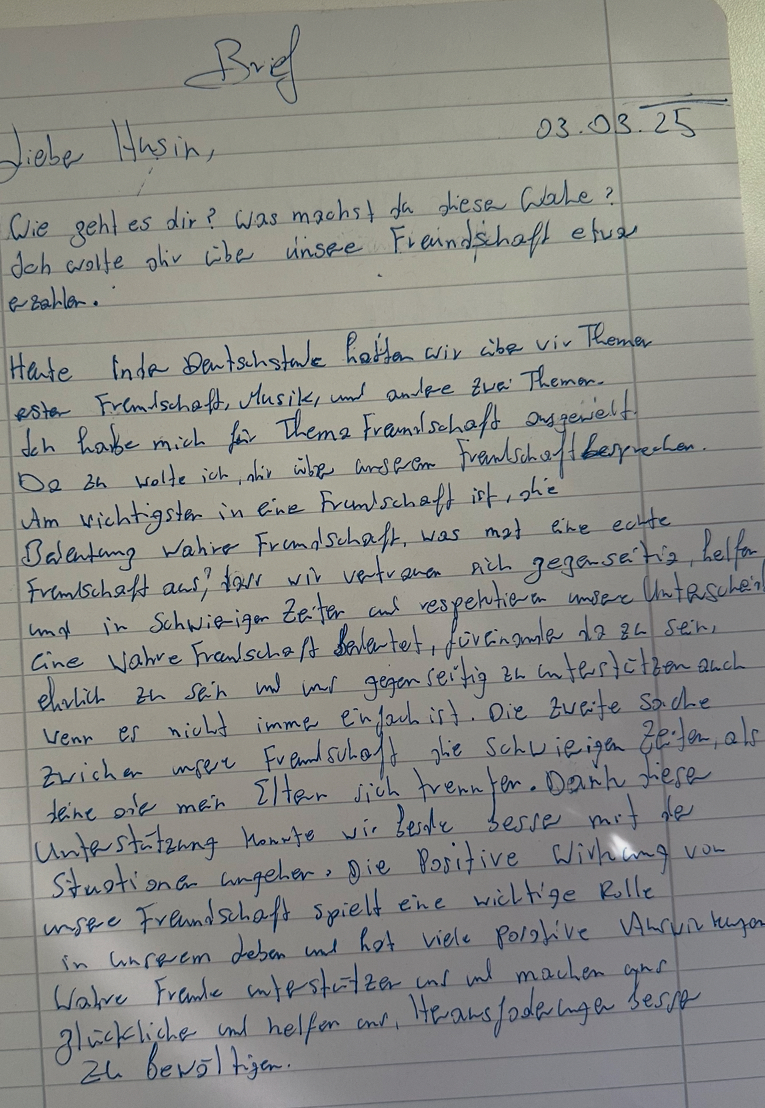 Brief
03.03.25
Liebe Husin,
Wie geht es dir? Was machst du diese Wohe?
Ich wolte dir übe unsee Freundschaft etwas
erzahlen.
Heute Inde Deutschstude hatten wir übe vir Themen
ester Freundschaft, Musik, und andee zwei Themen.
Ich habe mich für Thema Freundschaft ausgewelt.
Da zu wolte ich, dir übe unserem Freundschaft besprechen.
Am wichtigsten in eine Freundschaft ist, die
Bedeutung wahre Freundschaft, was mat eine echte
Freundschaft aus? dass wir vertrauen sich gegenseitig, helfen
und in Schwierigen Zeiten und respektieren unsere
Eine wahre Freundschaft bedeutet, füreinande da zu sein,
ehrlich zu sein und uns gegenseitig zu unterstützen auch
wenn es nicht imme einfach ist. Die zweite Sache
zwichen unsere Freundschaft die schwierigen Zeiten, als
deine ode mein Eltern sich trennten. Dank diese
Unterstützung konnte wir beide besse mit de
Situationen umgehen. Die Positive Wirkung von
unsee Freundschaft spielt eine wichtige Rolle
in unserem Leben und hat viele positive Auswirkungen
Wahre Freunde unterstützen uns und machen uns
glückliche und helfen uns, Herausfoderungen besse
zu bewältigen.